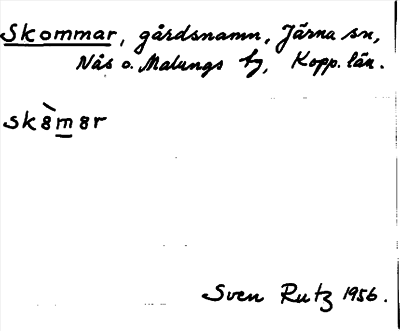 Skommar, gårdsnamn, Järna sn,
Nås o. Malungs tg, Kopp. län.
sk8̀m8r
Sven Rutz 1956.